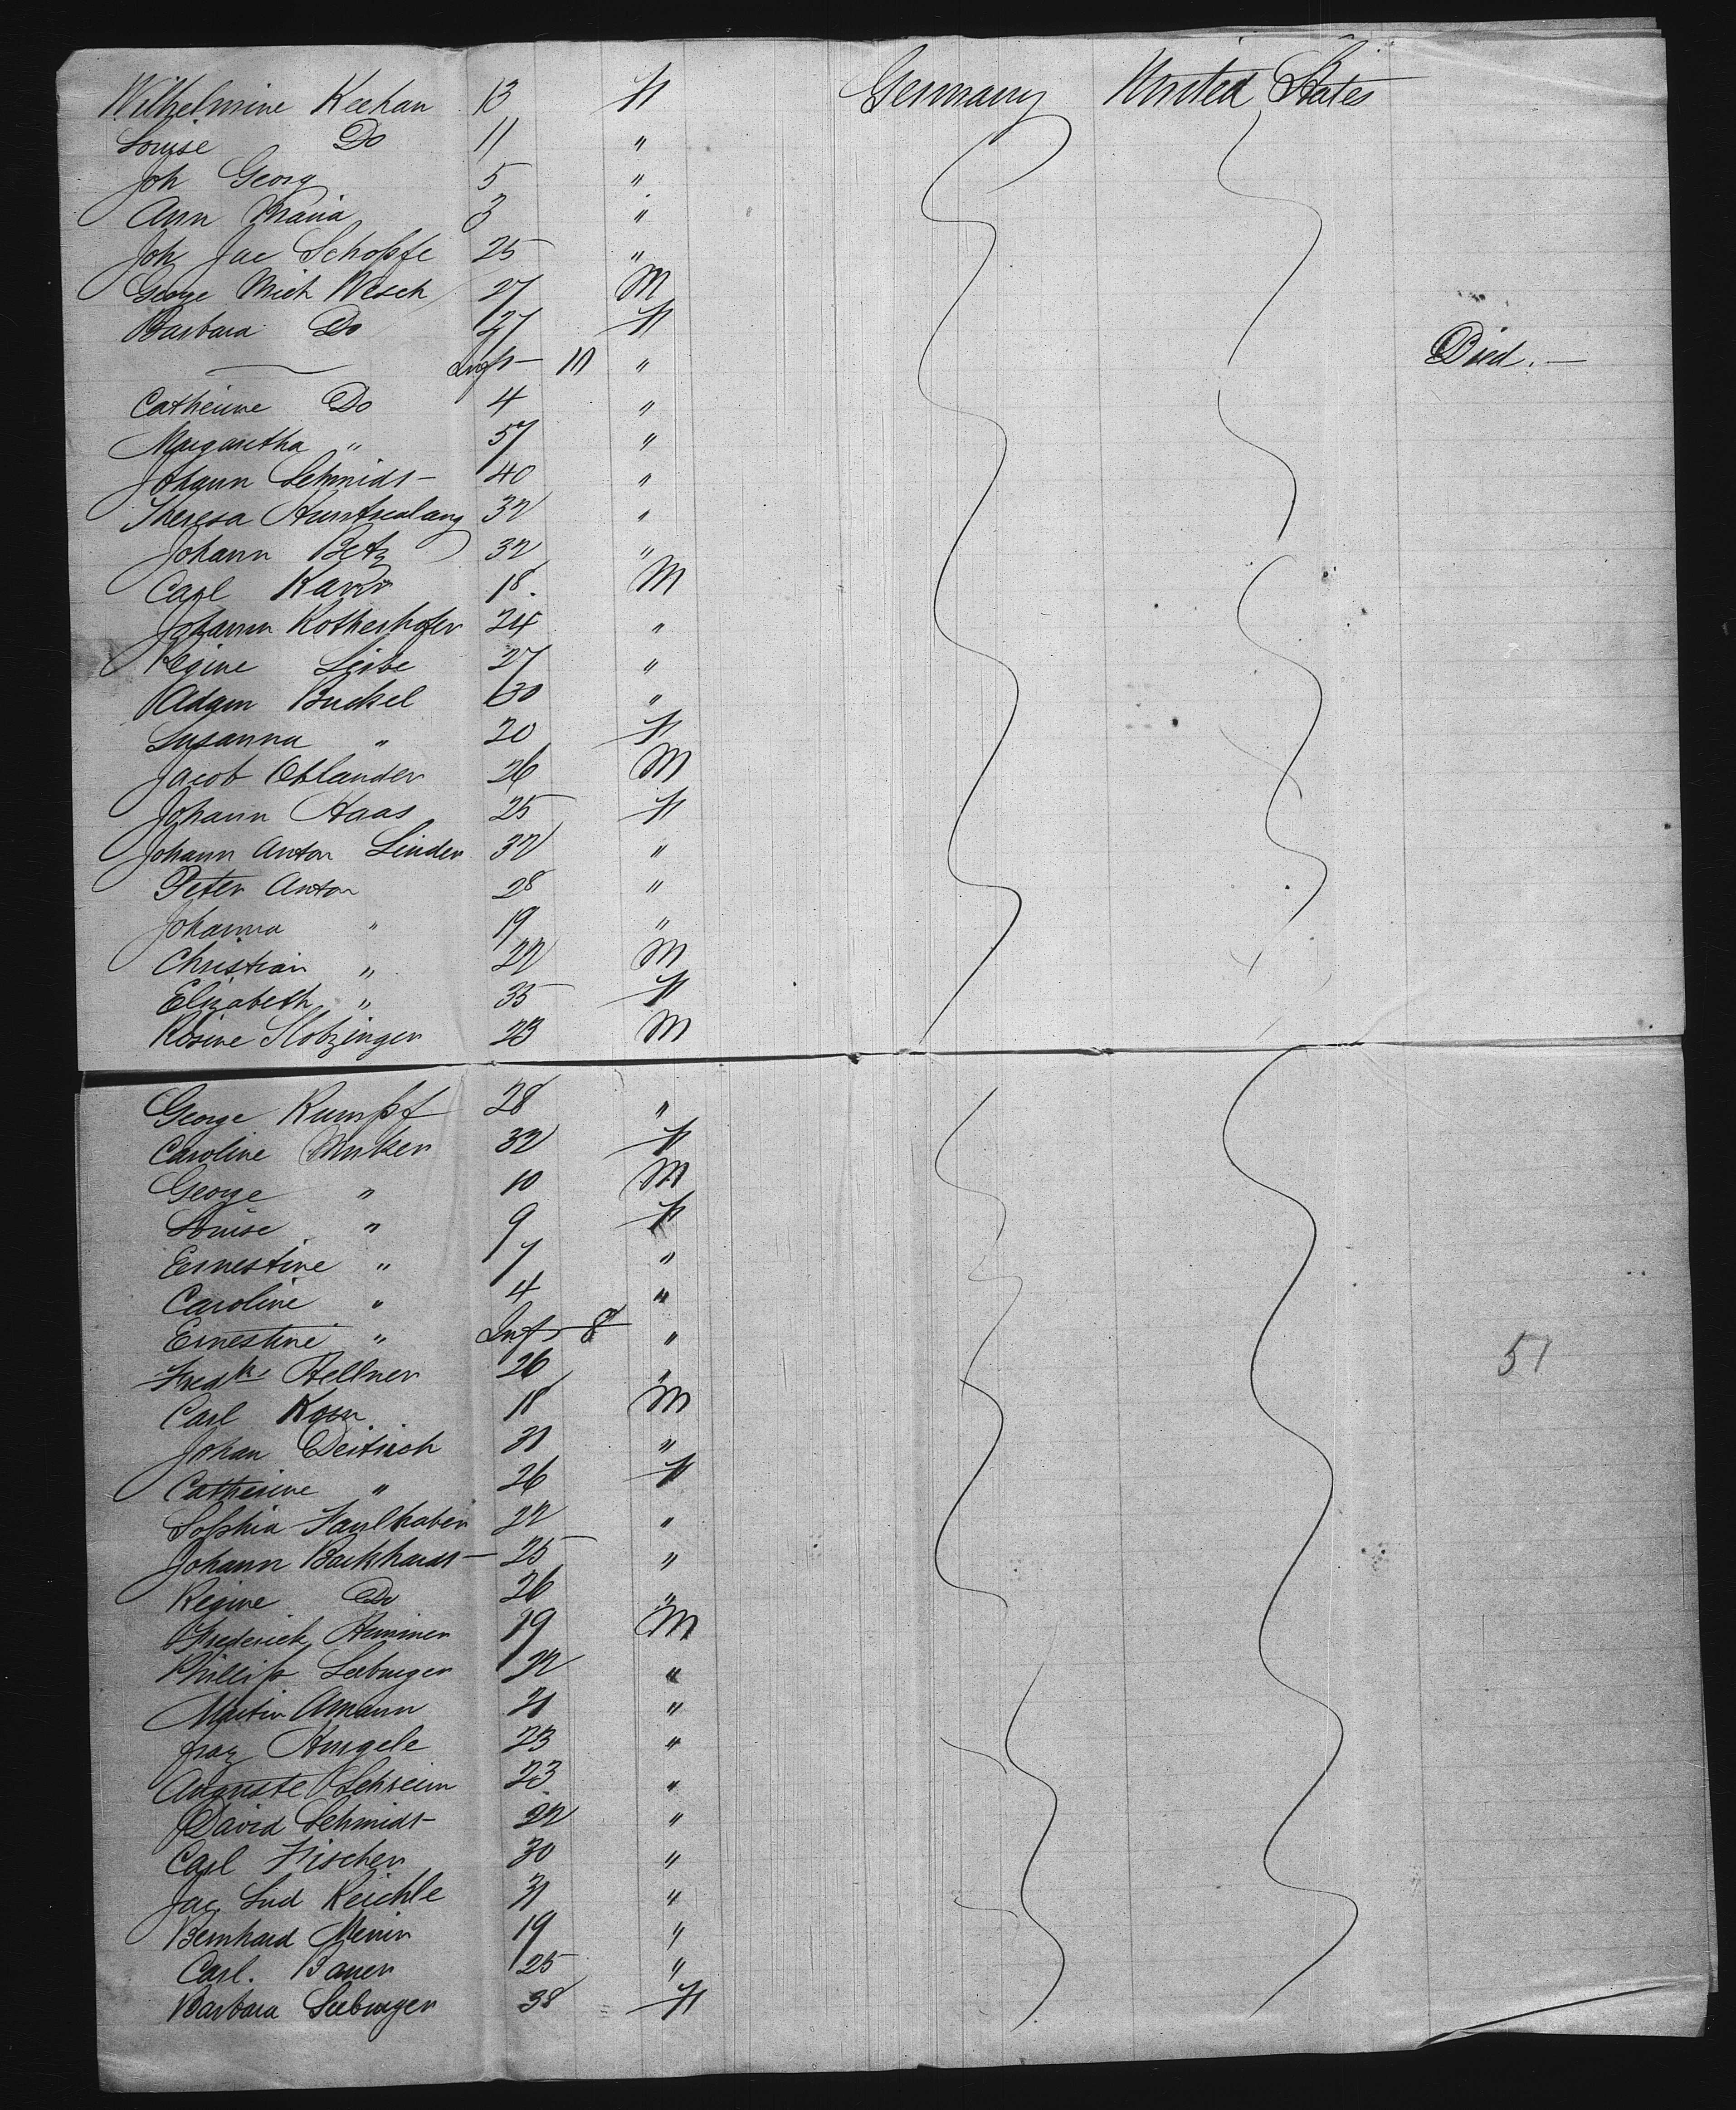 Wilhelmine Keehan 13 F Germany United States
Louise Do 11 "
Joh Georg 5 "
Ann Maria 3 "
Joh Jac Schopfe 25 "
George Mich Wesch 27 M
Barbara Do 27 F
Inft 10 " Died. —
Catherine Do 4 "
Margaretha " 57 "
Johann Schmidt 40 "
Theresa 32 "
Johann Betz 32 "
Carl 18. M
Johann Rotherhofer 24 "
Regine Leibe 27 "
Adam Buckel 30 "
Susanna " 20 F
Jacob Ohlander 26 M
Johann Haas 25 F
Johann Anton Linder 32 "
Peter Anton 28 "
Johanna " 19 "
Christian " 22 M
Elizabeth " 35 F
Rosine Slotzinger 23 M
George Rumpf 28 "
Caroline 32 F
George " 10 M
Louise " 9 F
Ernestine " 7 "
Caroline " 4 "
Ernestine " Inft 8 "
Fredk Hellner 26 "
Carl Korn 18 M
Johan Deitrich 31 "
Catherine " 26 F
Sophia Faulhaber 22 "
Johann Backhardt 25 "
Regine Do 26 "
Frederick Hummer 19 M
Phillip Seeburger 22 "
Martin Amann 21 "
Hingele 23 "
Auguste Schreim 23 "
David Schmidt 22 "
Carl Fischer 30 "
Jac Lud Reichle 31 "
Bernhard 19 "
Carl. Bauer 25 "
Barbara Seeburger 38 F
51